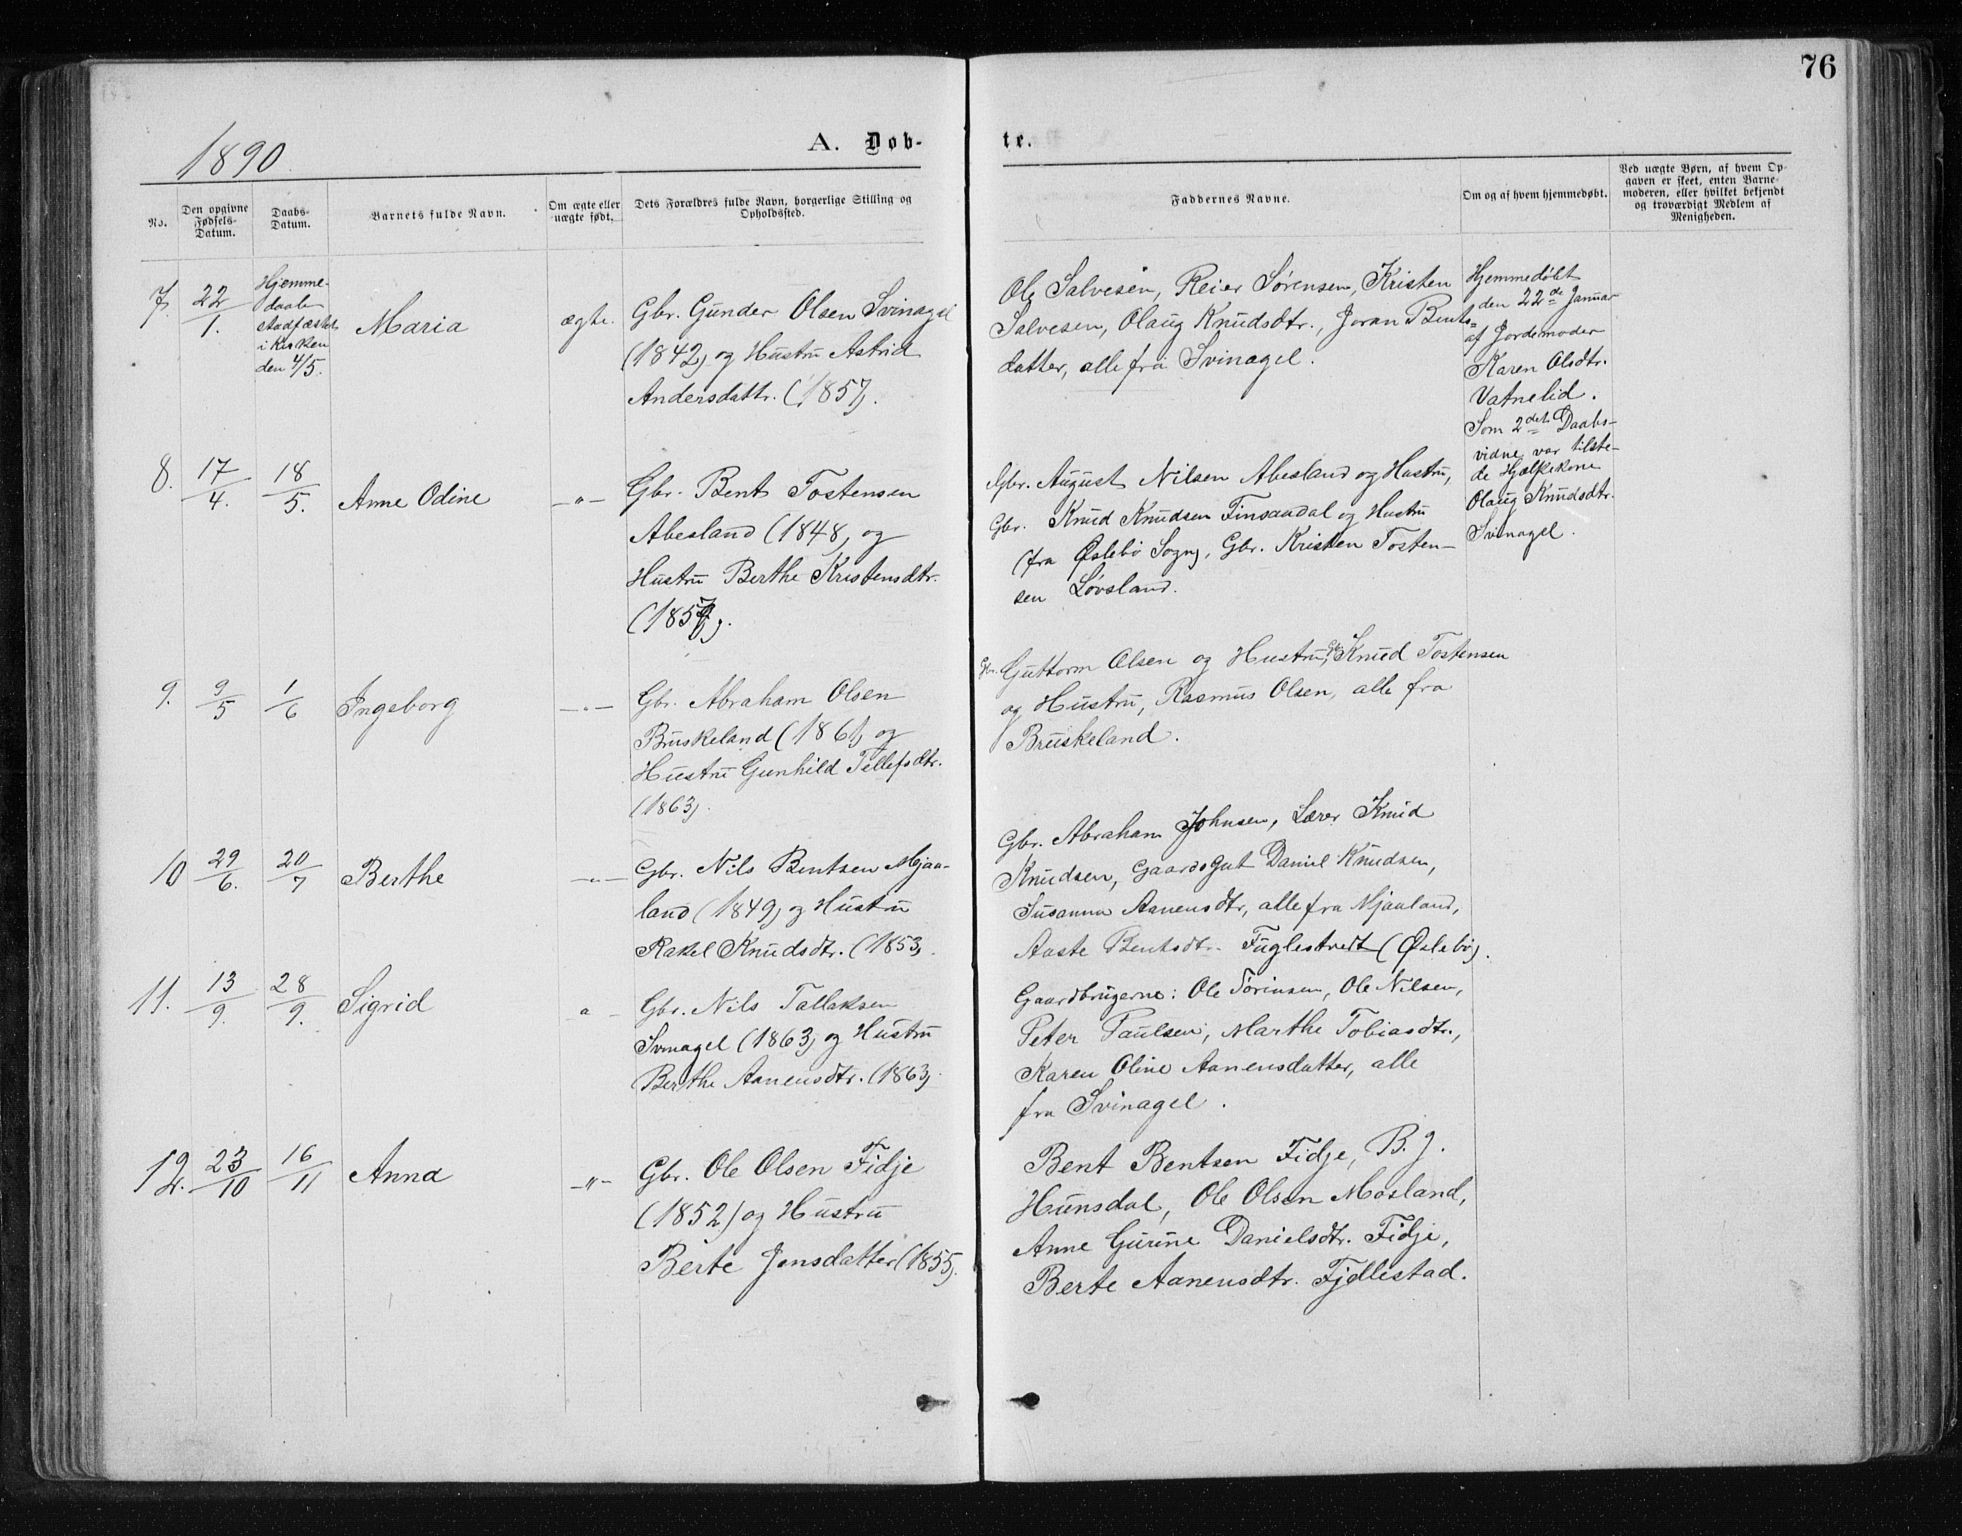 76
1890.
A. Døb-
te.
No.
Den opgivne
Fødsels-
Datum.
Daabs-
Datum.
Barnets fulde Navn.
Om ægte eller
uægte født.
Dets Forældres fulde Navn, borgerlige Stilling og
Opholdssted.
Faddernes Navne.
Om og af hvem hjemmedøbt.
Ved uægte Børn, af hvem Op-
gaven er skeet, enten Barne-
moderen, eller hvilket bekjendt
og troværdigt Medlem af
Menigheden.
7. 22/1.
Hjemme-
daaben
stadfæstet
i Kirken
den 4/5.
Maria
ægte.
Gbr. Gunder Olsen Svinagel
(1842) og Hustru Astrid
Andersdattr. (1857).
Ole Salvesen, Reier Sørensen, Kristen
Salvesen, Olaug Knudsdtr., Joran Bents-
datter, alle fra Svinagel.
Hjemmedøbt
den 22de Januar
af Jordemoder
Karen Olsdtr.
Vatnelid.
Som 2det Daabs-
vidne var tilste-
de Hjælpekone
Olaug Knudsdtr.
Svinagel.
8. 17/4. 18/5. Anne Odine -"-
Gbr. Bent Tostensen
Abesland (1848) og
Hustru Berthe Kristensdtr.
Gbr. August Nilsen Abesland og Hustru,
Gbr. Knud Knudsen Finsandal og Hustru
(fra Øslebø Sogn), Gbr. Kristen Tosten-
sen Løvsland.
9. 9/5 1/6 Ingeborg -"-
Gbr. Abraham Olsen
Bruskeland (1861) og
Hustru Gunhild Tellefsdtr.
(1863).
Gbr. Guttorm Olsen og Hustru, Gbr. Knud Tostensen
og Hustru, Rasmus Olsen, alle fra
Bruskeland.
10 29/6. 20/7 Berthe -"-
Gbr. Nils Bentsen Mjaa-
land (1849) og Hustru
Rakel Knudsdtr. (1853).
Gbr. Abraham Johnsen, Lærer Knud
Knudsen, Gaardsgut Daniel Knudsen,
Susanna Aanensdtr, alle fra Mjaaland,
Aaste Bentsdtr. Fuglestvedt (Øslebø).
11. 13/9. 28/9. Sigrid -"-
Gbr. Nils Tallaksen
Svinagel (1863) og Hustru
Berthe Aanensdtr. (1863).
Gaardbrugerne: Ole Sørensen, Ole Nilsen,
Peter Paulsen, Marthe Tobiasdtr.,
Karen Oline Aanensdatter, alle
fra Svinagel.
12. 23/10 16/11 Anna -"-
Gbr. Ole Olsen Fidje
(1852) og Hustru
Berte Jensdatter (1855).
Bent Bentsen Fidje, B. J.
Hunsdal, Ole Olsen Mosland,
Anne Gurine Danielsdtr. Fidje,
Berte Aanensdtr. Fjellestad.